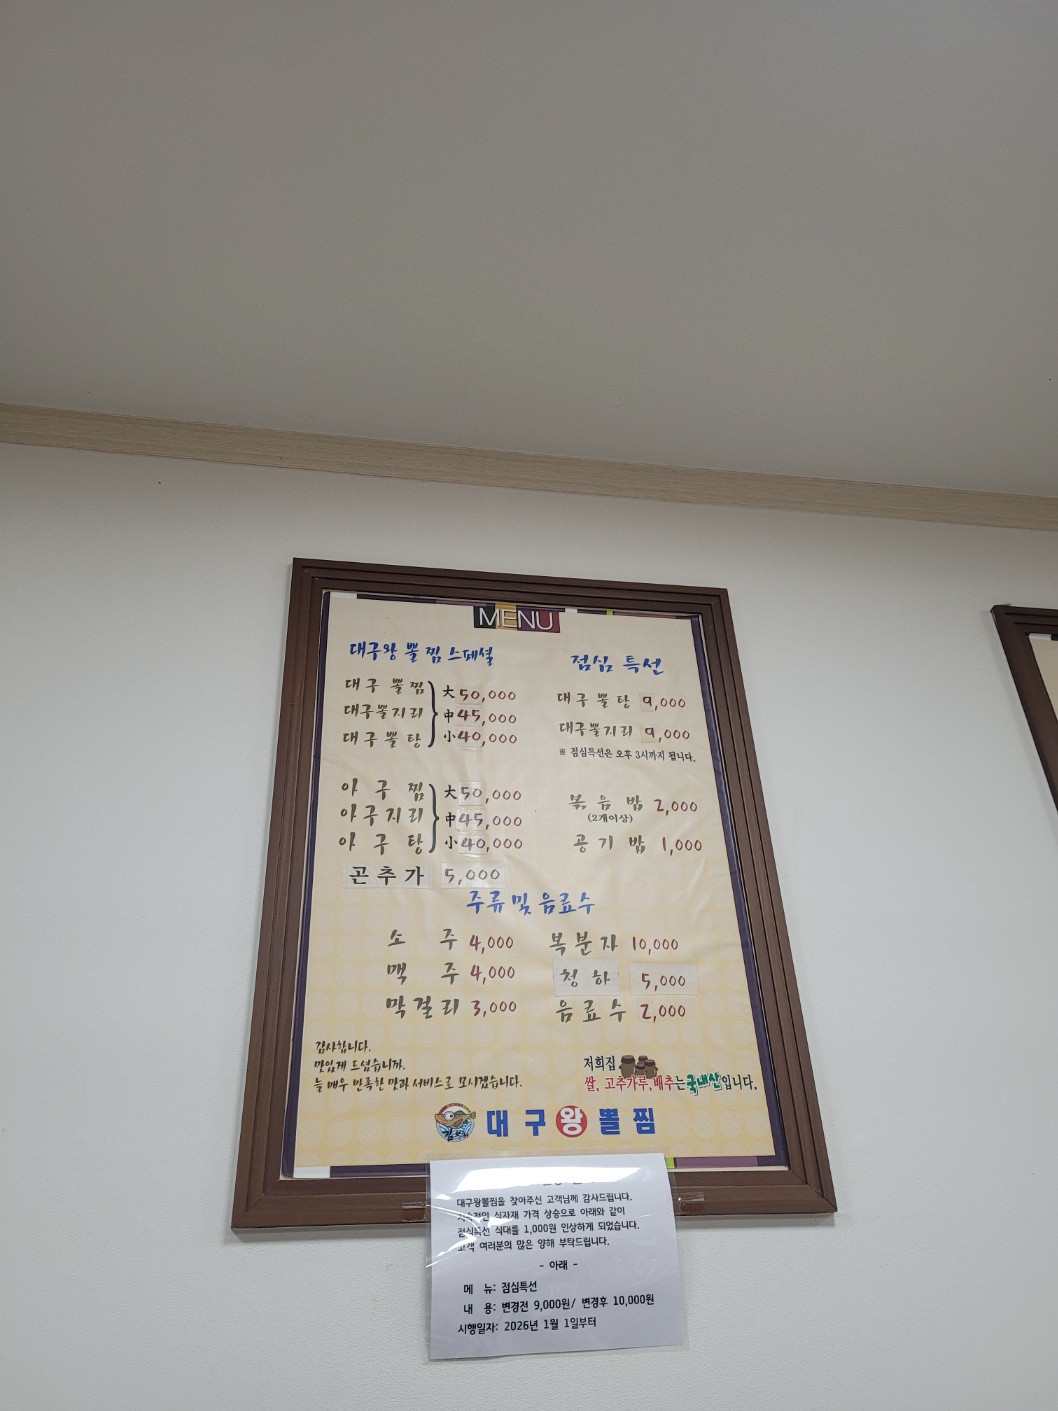 MENU
대구왕 뽈찜 스페셜
대구 뽈찜
대구뽈지리
대구 뽈탕
大 50,000
中 45,000
小 40,000
아구찜
아구지리
아구탕
大 50,000
中 45,000
小 40,000
곤추가 5,000
점심 특선
대구뽈탕 9,000
대구뽈지리 9,000
※ 점심특선은 오후 3시까지 됩니다.
볶음밥 2,000
(2개이상)
공기밥 1,000
주류 및 음료수
소주 4,000
맥주 4,000
막걸리 3,000
복분자 10,000
청하 5,000
음료수 2,000
감사합니다.
맛있게 드셨습니까.
늘 매우 만족한 맛과 서비스로 모시겠습니다.
저희집
쌀, 고추가루, 배추는 국내산입니다.
대구왕뽈찜
대구왕뽈찜을 찾아주신 고객님께 감사드립니다.
식자재 가격 상승으로 아래와 같이
점심특선 식대를 1,000원 인상하게 되었습니다.
고객 여러분의 많은 양해 부탁드립니다.
- 아래 -
메 뉴: 점심특선
내 용: 변경전 9,000원/ 변경후 10,000원
시행일자: 2026년 1월 1일부터